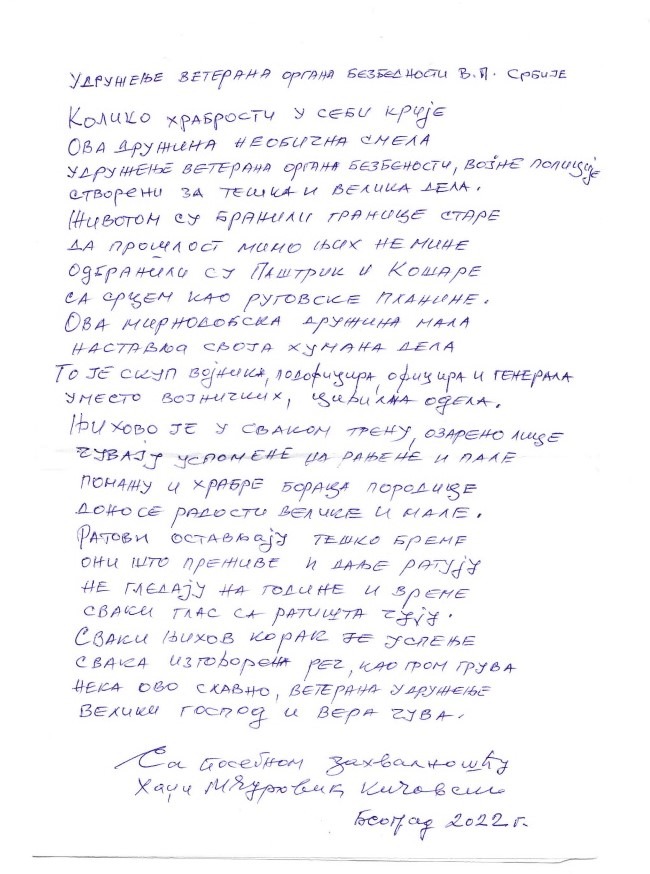 УДРУЖЕЊЕ ВЕТЕРАНА ОРГАНА БЕЗБЕДНОСТИ В.П. СРБИЈЕ
КОЛИКО ХРАБРОСТИ У СЕБИ КРИЈЕ
ОВА ДРУЖИНА НЕОБИЧНА СМЕЛА
УДРУЖЕЊЕ ВЕТЕРАНА ОРГАНА БЕЗБЕНОСТИ, ВОЈНЕ ПОЛИЦИЈЕ
СТВОРЕНИ ЗА ТЕШКА И ВЕЛИКА ДЕЛА.
ЖИВОТОМ СУ БРАНИЛИ ГРАНИЦЕ СТАРЕ
ДА ПРОШЛОСТ МИМО ЊИХ НЕ МИНЕ
ОДБРАНИЛИ СУ ПАШТРИК И КОШАРЕ
СА СРЦЕМ КАО РУГОВСКЕ ПЛАНИНЕ.
ОВА МИРНОДОБСКА ДРУЖИНА МАЛА
НАСТАВЉА СВОЈА ХУМАНА ДЕЛА
ТО ЈЕ СКУП ВОЈНИКА, ПОДОФИЦИРА, ОФИЦИРА И ГЕНЕРАЛА
УМЕСТО ВОЈНИЧКИХ, ЦИВИЛНА ОДЕЛА.
ЊИХОВО ЈЕ У СВАКОМ ТРЕНУ, ОЗАРЕНО ЛИЦЕ
ЧУВАЈУ УСПОМЕНЕ НА РАЊЕНЕ И ПАЛЕ
ПОМАЖУ И ХРАБРЕ БОРАЦА ПОРОДИЦЕ
ДОНОСЕ РАДОСТИ ВЕЛИКЕ И МАЛЕ.
РАТОВИ ОСТАВЉАЈУ ТЕШКО БРЕМЕ
ОНИ ШТО ПРЕЖИВЕ И ДАЉЕ РАТУЈУ
НЕ ГЛЕДАЈУ НА ГОДИНЕ И ВРЕМЕ
СВАКИ ГЛАС СА РАТИШТА ЧУЈУ.
СВАКИ ЊИХОВ КОРАК ЈЕ УСПЕЊЕ
СВАКА ИЗГОВОРЕНА РЕЧ, КАО ГРОМ ГРУВА
НЕКА ОВО СЛАВНО, ВЕТЕРАНА УДРУЖЕЊЕ
ВЕЛИКИ ГОСПОД И ВЕРА ЧУВА.
Са посебном захвалношћу
Хаџи
Београд 2022 г.